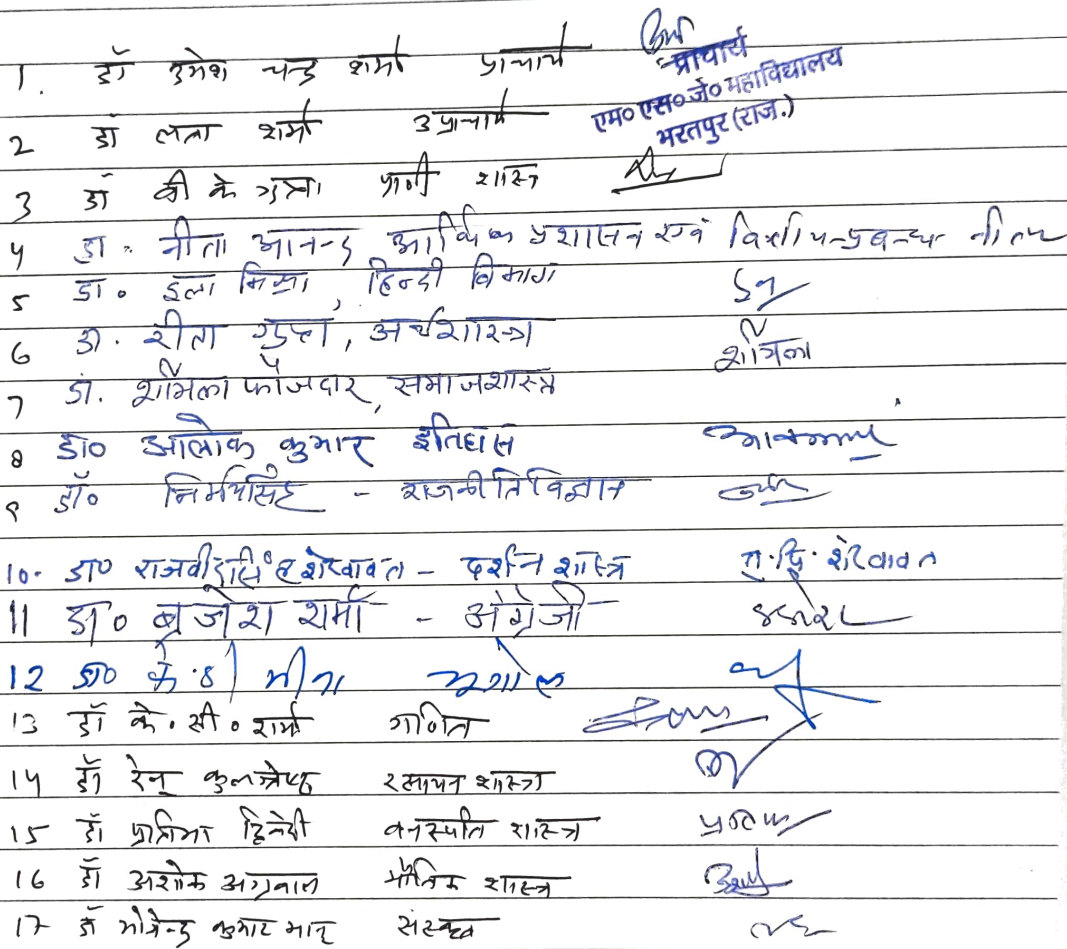 1. डॉ उमेश चन्द्र शर्मा प्राचार्य
प्राचार्य
एम० एस० जे० महाविद्यालय
भरतपुर (राज.)
2 डॉ लता शर्मा उप्राचार्य
3 डॉ बी के गुप्ता प्राणी शास्त्र
4 डा. नीता आनन्द आर्थिक प्रशासन एवं वित्तीय प्रबन्धन नीता
5 डा० इला मिश्रा, हिन्दी विभाग
6 डॉ. रीता गुप्ता, अर्थशास्त्र
7 डॉ. शर्मिला फौजदार, समाजशास्त्र शर्मिला
8 डा० आलोक कुमार इतिहास
9 डॉ० निर्भयसिंह - राजनीति विज्ञान
10. डा० राजवीरसिंह शेखावत - दर्शन शास्त्र शेखावत
11 डा० ब्रजेश शर्मा - अंग्रेजी ब्रजेश
12 डा० के. डी मीना भूगोल
13 डॉ के. सी. शर्मा गणित
14 डॉ रेनू कुलश्रेष्ठ रसायन शास्त्र
15 डॉ प्रतिमा द्विवेदी वनस्पति शास्त्र
16 डॉ अशोक अग्रवाल भौतिक शास्त्र
17 डॉ कुमार संस्कृत